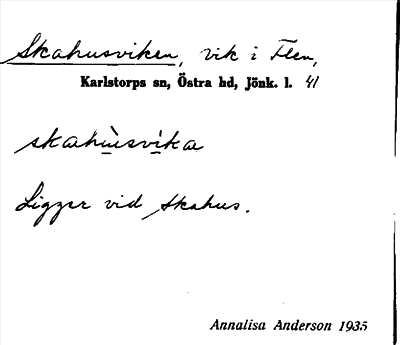 Skahusviken, vik i Flen,
Karlstorps sn, Östra hd, Jönk. l. 41
skahùsvika
Ligger vid Skahus.
Annalisa Anderson 1935